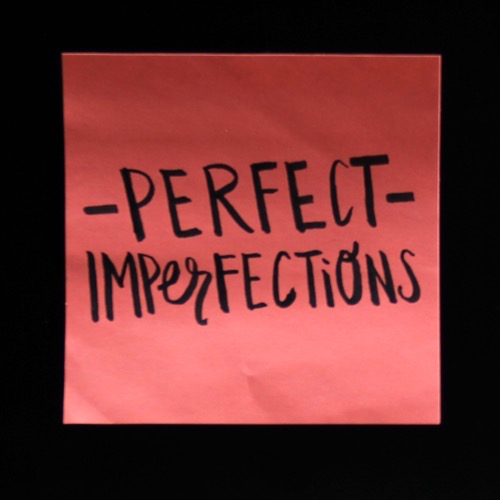 -PERFECT-
IMPerFECTiONS